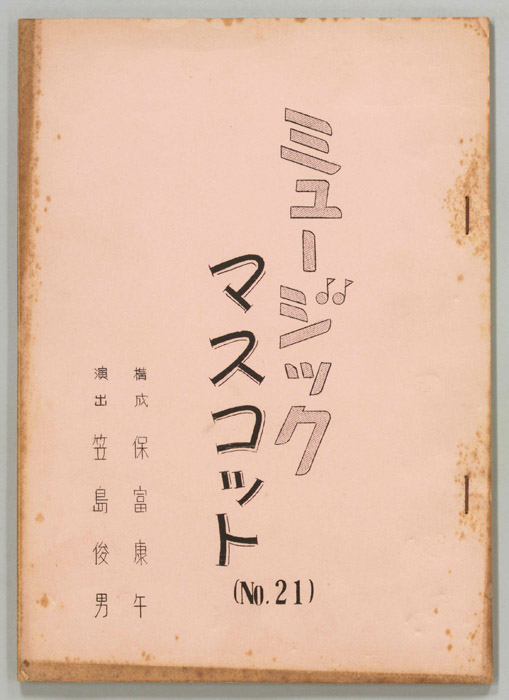 ミュージック
マスコット
(No.21)
構成 保富康午
演出 笠島俊男